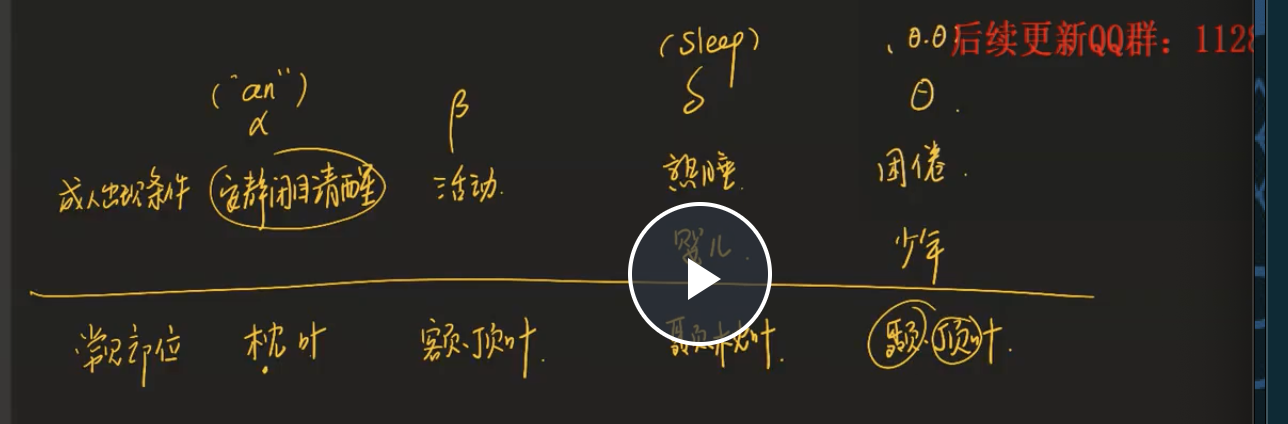 (sleep) θ.θ 后续更新QQ群：1128
("an")
α β δ θ
成人出现条件 安静闭目清醒 活动. 熟睡. 困倦.
婴儿. 少年
常见部位 枕叶 额、顶叶. 颞、枕叶. 颞、顶叶.